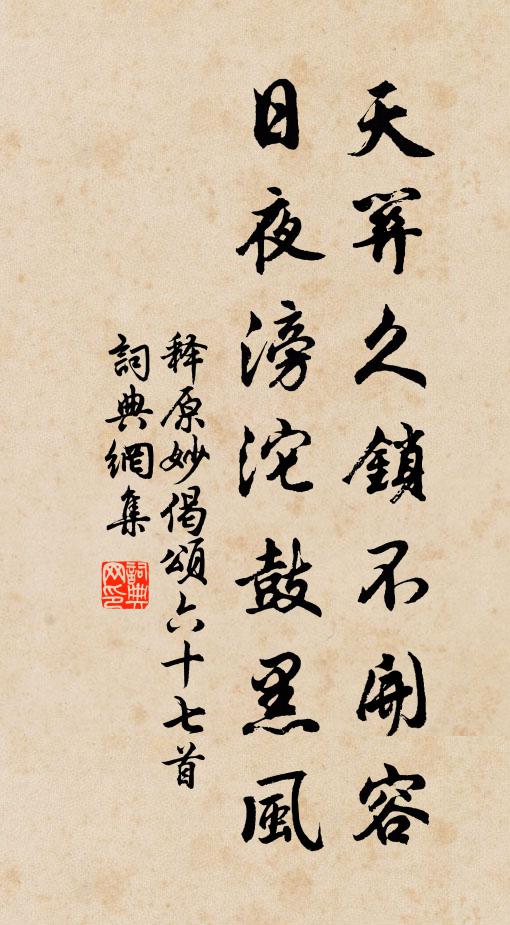 天關久鎖不開容
日夜滂沱鼓黑風
释原妙偈頌六十七首
詞典網集
詞典网印